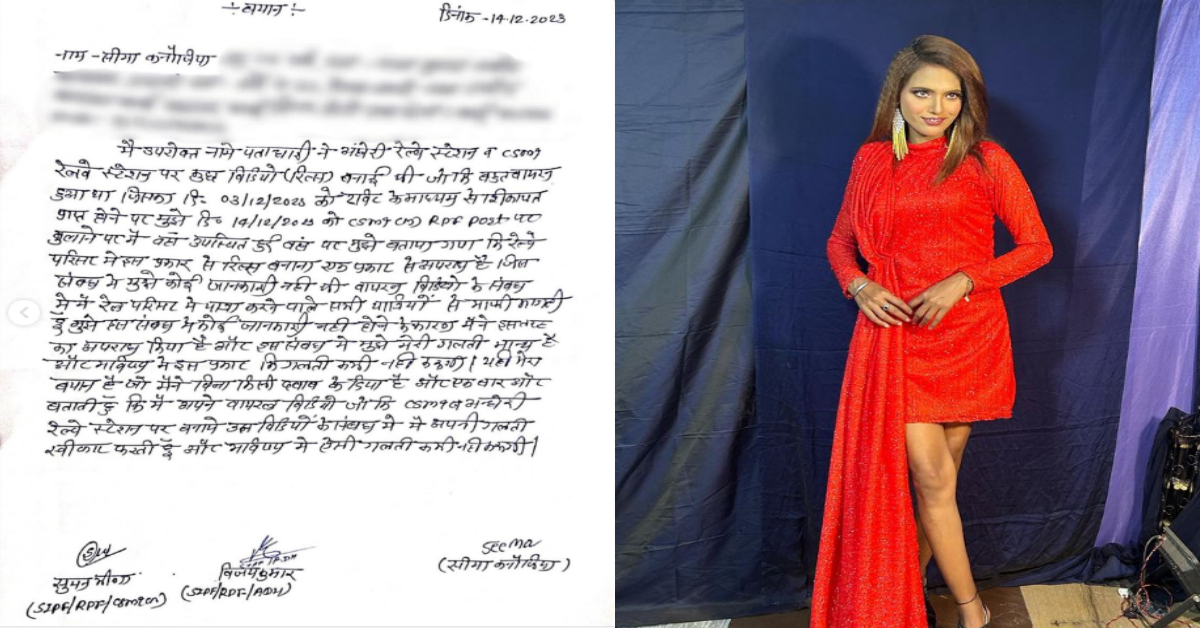 -: बयान :-
दिनांक -14.12.2023
नाम - सीमा कनौजिया
मै उपरोक्त नामे पताधारी ने अंधेरी रेल्वे स्टेशन व CSMT
रेलवे स्टेशन पर कुछ विडियो (रिल्स) बनाई थी जो कि वायरल
हुआ था जिसका दि- 03/12/2023 को ट्वीट के माध्यम से शिकायत
प्राप्त होने पर मुझे दि- 14/12/2023 को CSMT RPF POST पर
बुलाने पर मै वहां उपस्थित हुई वहां पर मुझे बताया गया कि रेल्वे
परिसर मे इस प्रकार से रिल्स बनाना एक प्रकार से अपराध है। जिस
संबंध मे मुझे कोई जानकारी नही थी वायरल विडियो के संबंध
मे मै रेल परिसर मे यात्रा करने वाले सभी यात्रियों से माफी मांगती
हूँ मुझे इस संबंध मे कोई जानकारी नही होने के कारण मैने इस तरह
का अपराध किया है और इस संबंध मे मुझे मेरी गलती मान्य है
और भविष्य मे इस प्रकार कि गलती कभी नही करूंगी। यही मेरा
बयान है जो मैने बिना किसी दबाव के दिया है और एक बार और
बताती हूँ कि मै अपने वायरल विडियो जो कि CSMT व अन्धेरी
रेल्वे स्टेशन पर बनाये उस विडियों के संबंध मे मै अपनी गलती
स्वीकार करती हूँ और भविष्य मे ऐसी गलती कभी नही करूंगी।
Seema
(सीमा कनौजिया)
विजय कुमार
(SIPF/RPF/ADH)
(SIPF/RPF/CSMT)